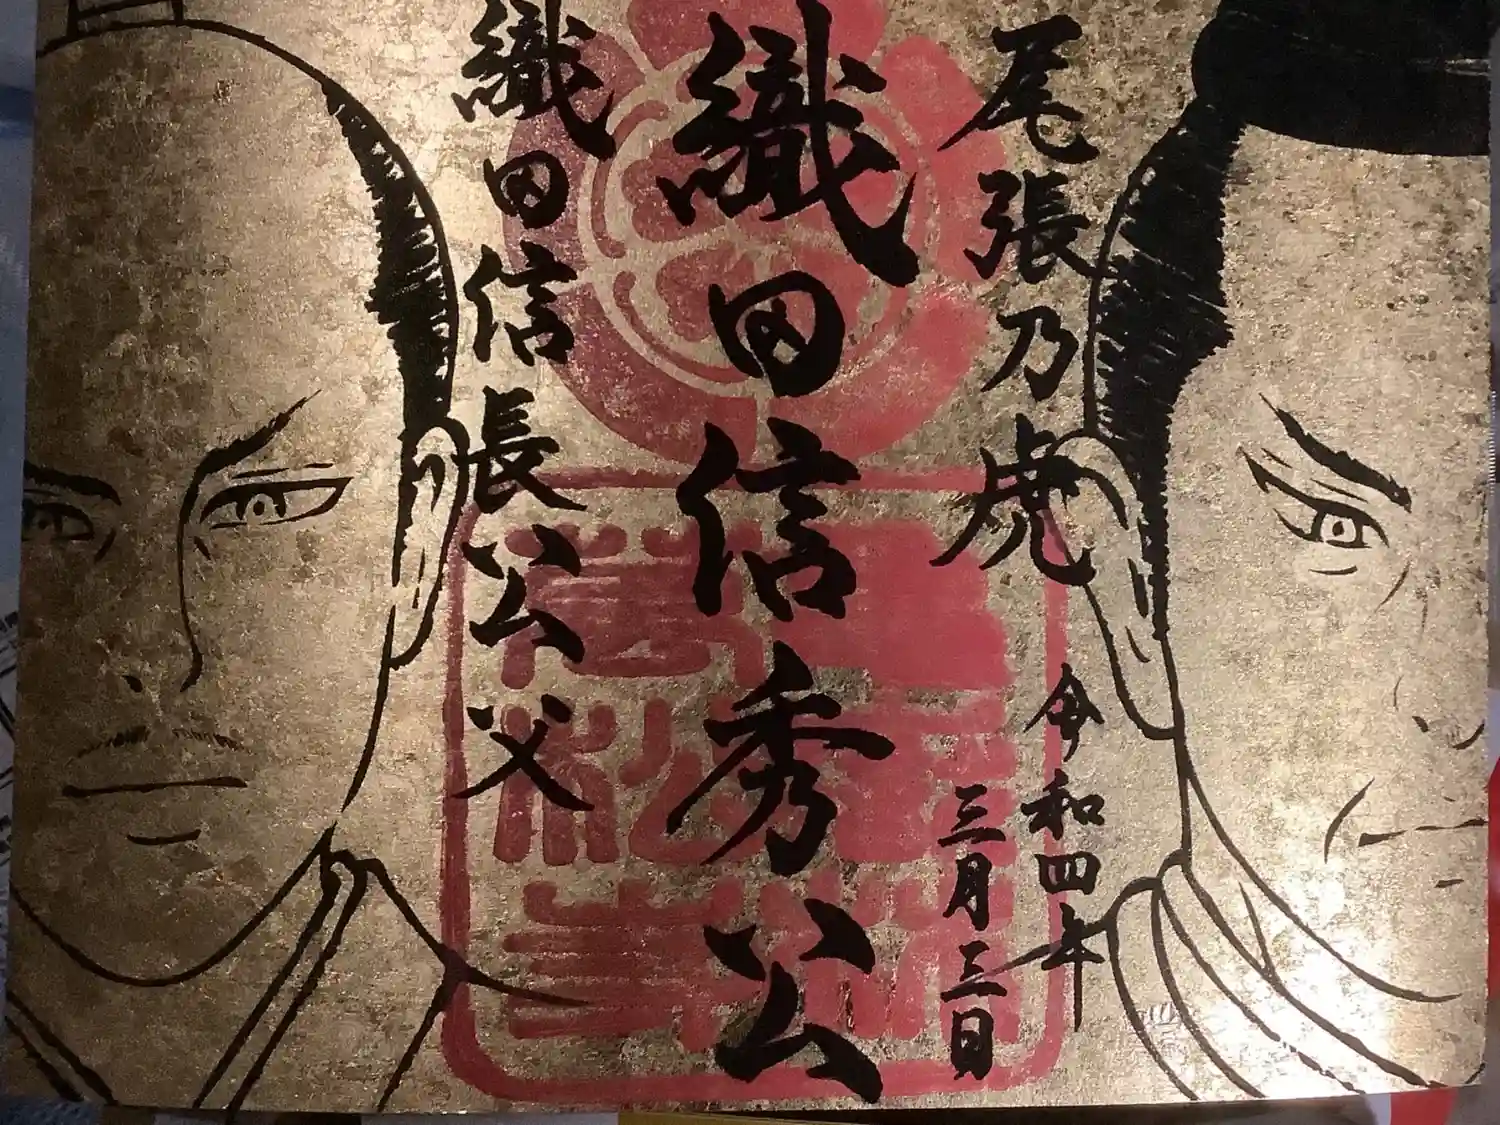 尾張乃虎
令和四年
三月三日
織田信秀公
織田信長公父